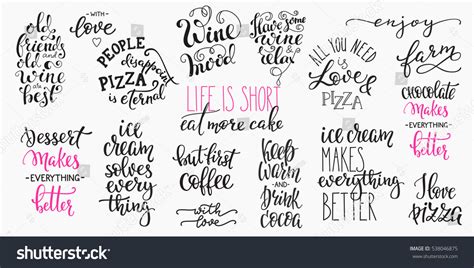 old
friends
and old
wine are
best
with
love
PEOPLE
DISAPPOINT
PIZZA
is eternal
Wine
mood
Have some
wine
relax
ALL YOU NEED
is
Love
&
PIZZA
enjoy
farm
LIFE IS SHORT
eat more cake
chocolate
MAKES
-EVERYTHING-
better
Dessert
MAKES
-EVERYTHING-
better
ice
cream
solves
every
thing
but first
coffee
with love
Keep
WARM
AND
DRINK
COCOA
ice cream
MAKES
everything
BETTER
I love
pizza
shutterstock
IMAGE ID: 538046875
www.shutterstock.com